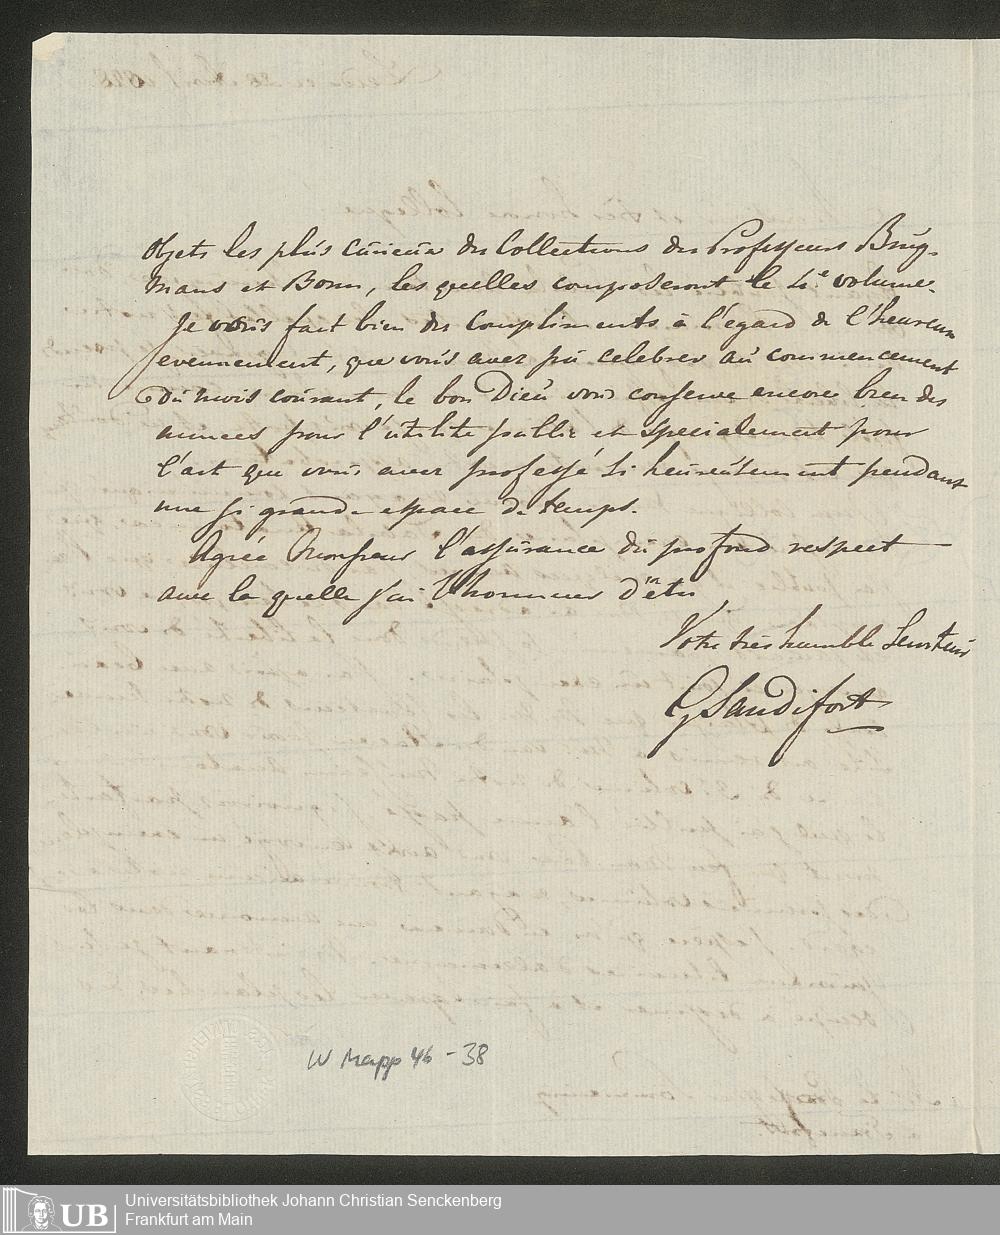 objets les plus curieux des Collections des Professeurs Brug-
mans et Bonn, les quelles composeront le 4e volume.
Je vous fait bien des Compliments à l'égard de l'heureux
evennement, que vous avez pu celebrer au commencement
du mois courant, le bon Dieu vous conserve encore bien des
annees pour l'utilite public et specialement pour
l'art que vous avez professé si heureusement pendant
une si grande espace de temps.
Agrée Monsieur l'assurance du profond respect
avec la quelle j'ai l'honneur d'etre
Votre très humble Serviteur
GSandifort
W Mapp 46-38
UB
Universitätsbibliothek Johann Christian Senckenberg
Frankfurt am Main